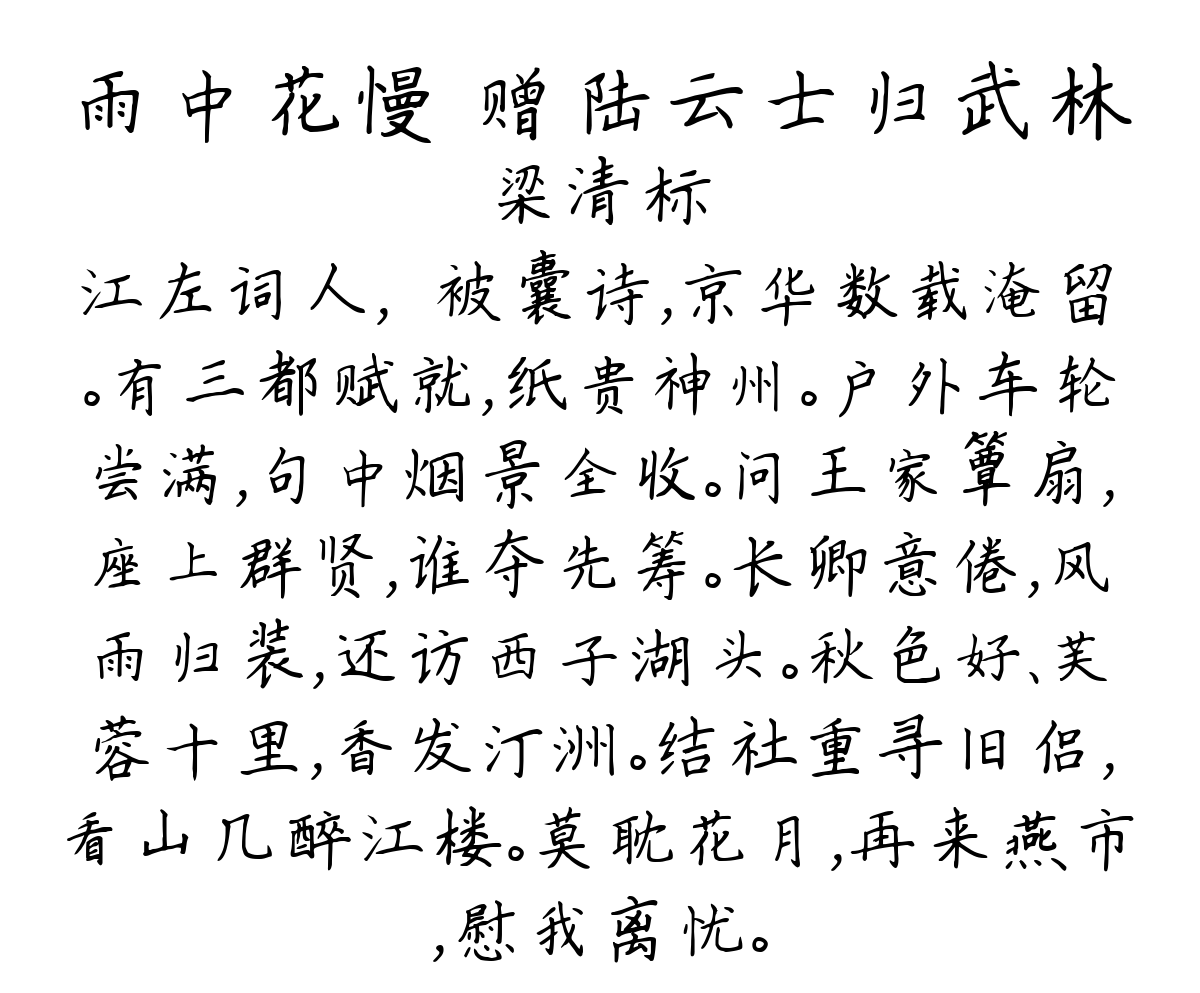 雨中花慢 赠陆云士归武林
梁清标
江左词人，被囊诗,京华数载淹留
。有三都赋就,纸贵神州。户外车轮
尝满,句中烟景全收。问王家簟扇,
座上群贤,谁夺先筹。长卿意倦,风
雨归装,还访西子湖头。秋色好、芙
蓉十里,香发汀洲。结社重寻旧侣,
看山几醉江楼。莫耽花月,再来燕市
,慰我离忧。